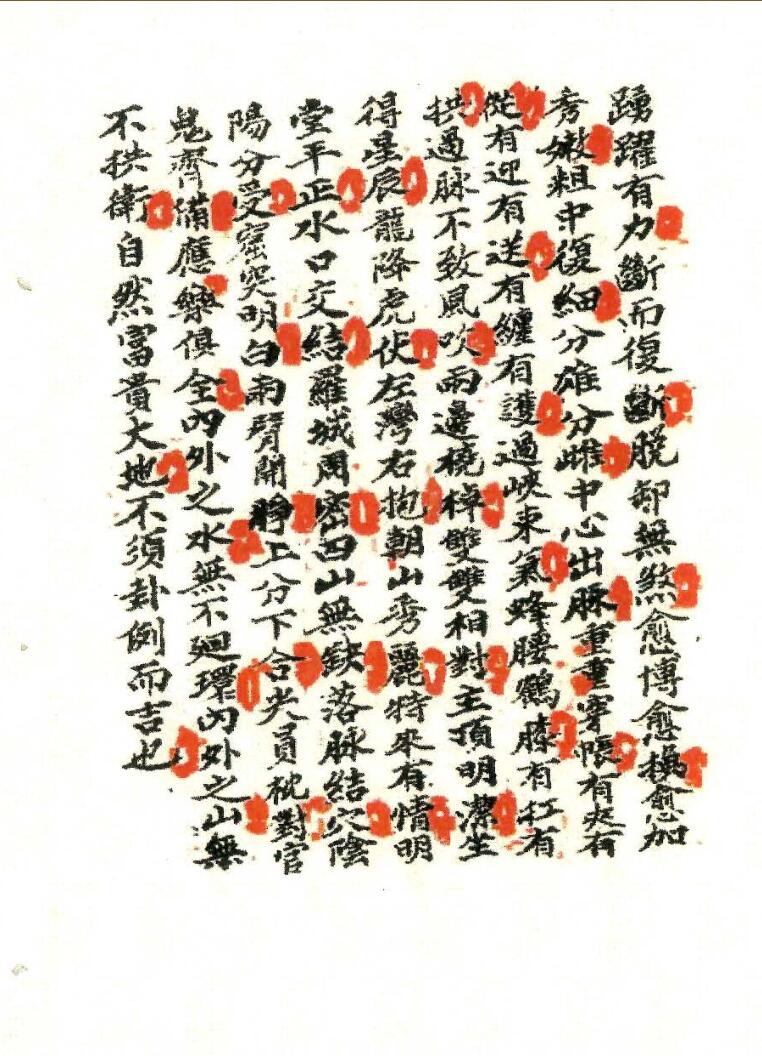 踴躍有力斷而復斷脫卸無煞愈博愈換愈加
秀嫩粗中復細分雄分雌中心出脈重重穿帳有夾有
從有迎有送有纏有護過峽束氣蜂腰鶴膝有扛有
拱過脉不致風吹兩邊橈棹雙雙相對主頂明潔生
得星辰龍降虎伏左灣右抱朝山秀麗特來有情明
堂平正水口交結羅城周密四山無缺落脉結穴陰
陽分受窩突明白兩臂開睜上分下合尖員枕對官
鬼齊備應樂俱全內外之水無不迴環內外之山無
不拱衛自然富貴大地不須卦例而吉也